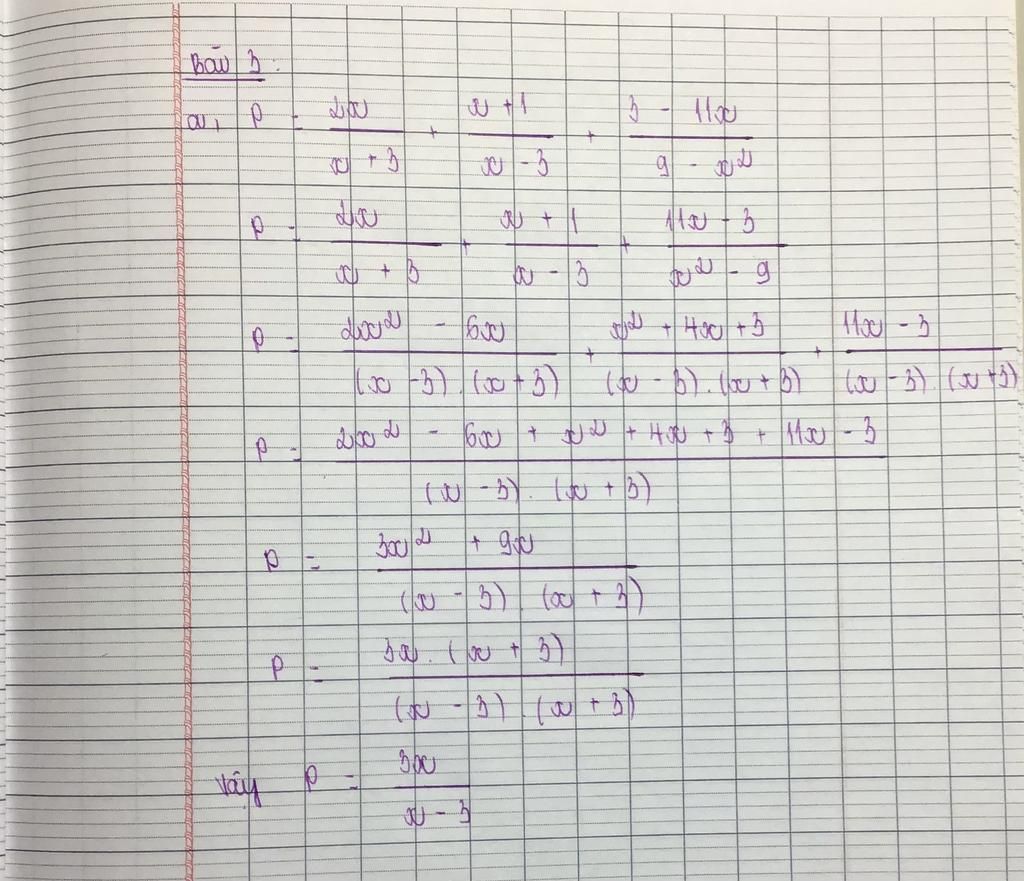 Bài 3:
a, P = 2x/(x + 3) + (x + 1)/(x - 3) + (3 - 11x)/(9 - x²)
P = 2x/(x + 3) + (x + 1)/(x - 3) + (11x - 3)/(x² - 9)
P = (2x² - 6x)/((x - 3).(x + 3)) + (x² + 4x + 3)/((x - 3).(x + 3)) + (11x - 3)/((x - 3).(x + 3))
P = (2x² - 6x + x² + 4x + 3 + 11x - 3)/((x - 3).(x + 3))
P = (3x² + 9x)/((x - 3).(x + 3))
P = (3x.(x + 3))/((x - 3).(x + 3))
Vậy P = 3x/(x - 3)